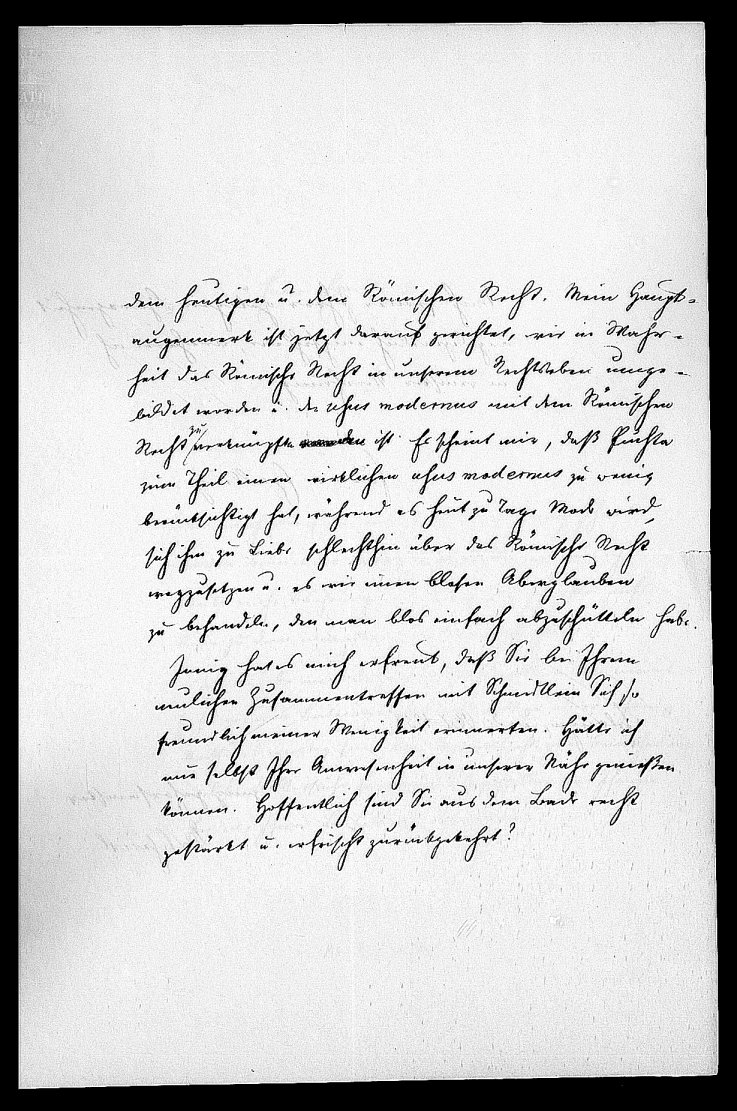 dem heutigen u. dem Römischen Recht. Mein Haupt-
augenmerk ist jetzt darauf gerichtet, wie in Wahr-
heit das Römische Recht in unserem Rechtsleben umge-
bildet worden u. der usus modernus mit dem Römischen
Recht zu verknüpfen ist. Es scheint mir, daß Puchta
zum Theil einen wirklichen usus modernus zu wenig
berücksichtigt hat, während es heut zu Tage Mode wird,
sich ihm zu Liebe schlechthin über das Römische Recht
wegzusetzen u. es wie einen blosen Aberglauben
zu behandeln, den man blos einfach abzuschütteln habe.
Innig hat es mich erfreut, daß Sie bei Ihrem
neulichen Zusammentreffen mit Scheidlein Sich so
freundlich meiner Wenigkeit erinnerten. Hätte ich
nur selbst Ihre Anwesenheit in unserer Nähe genießen
können. Hoffentlich sind Sie aus dem Bade recht
gestärkt u. erfrischt zurückgekehrt?